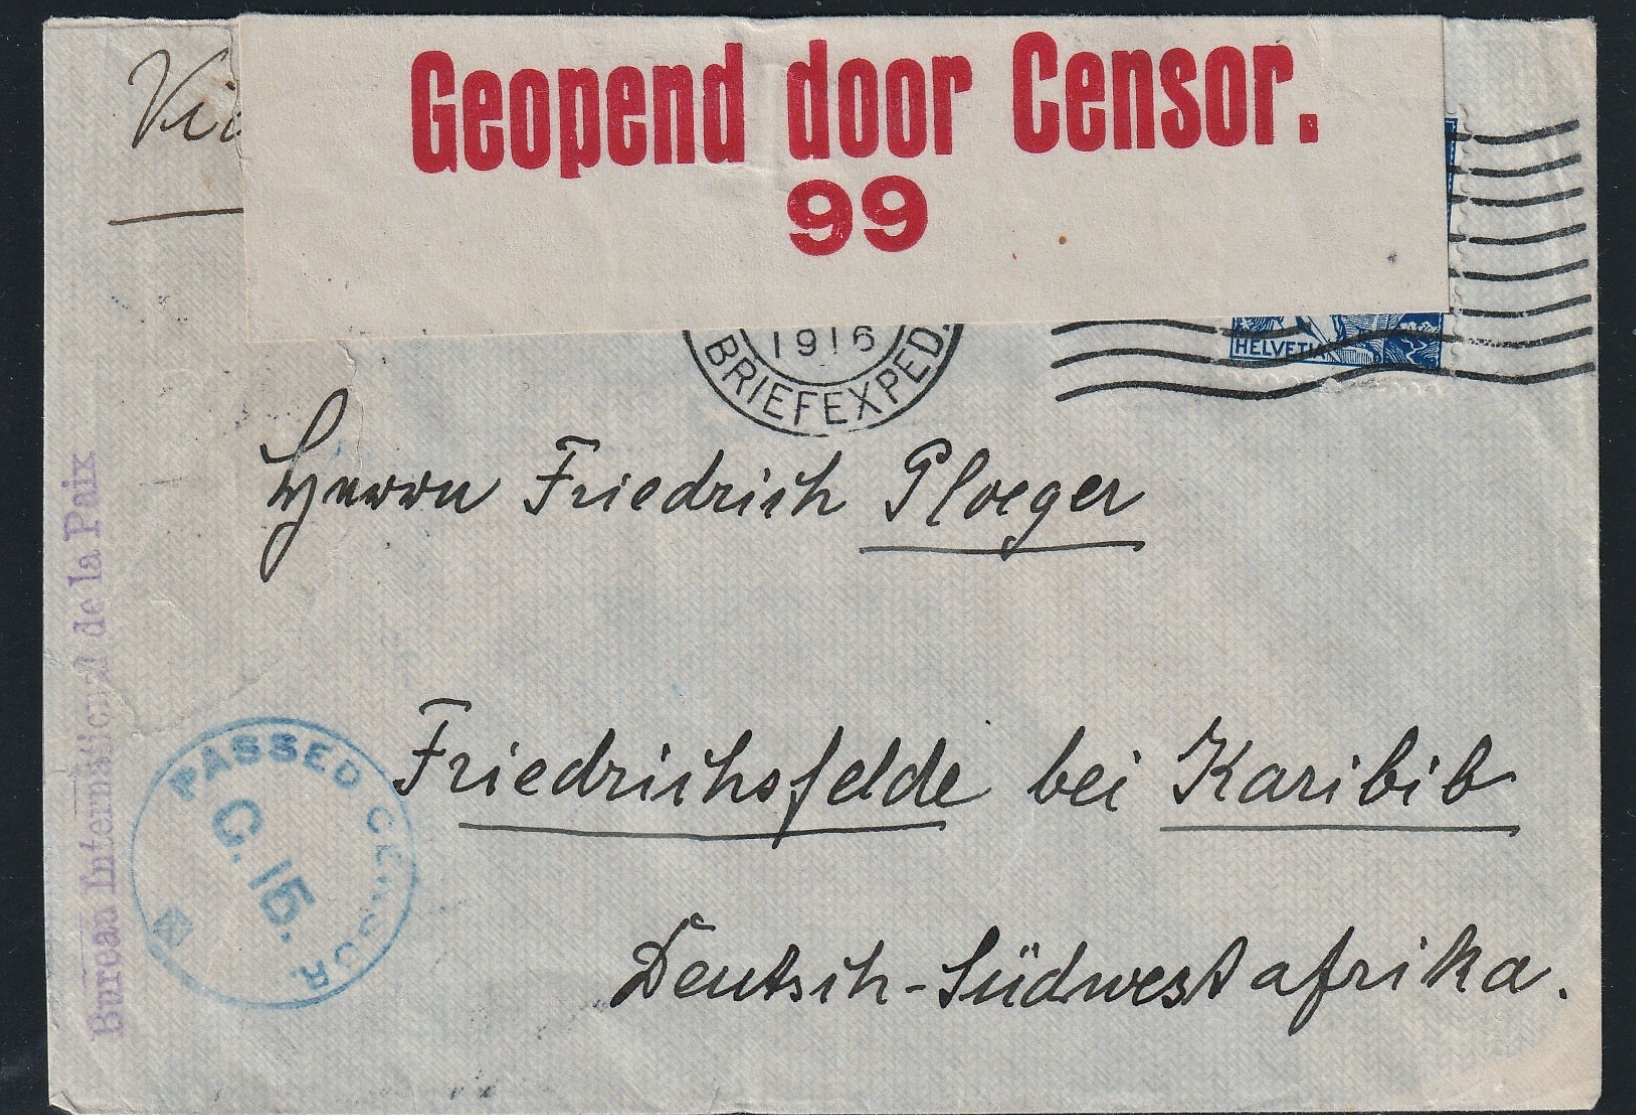 Geopend door Censor.
99
1916
BRIEFEXPED.
HELVETIA
Herrn Friedrich Ploeger
Friedrichsfelde bei Karibib
Deutsch-Südwestafrika.
Bureau International de la Paix
PASSED CENSOR
C.15.